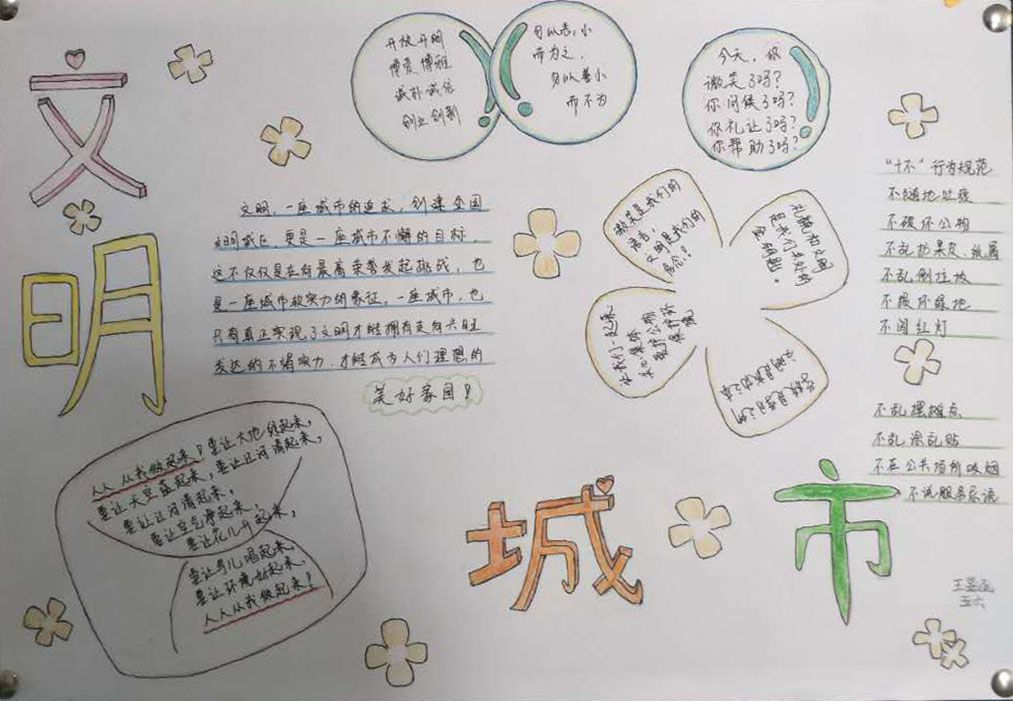 文
明
城
市
开放开明
博爱博雅
诚朴诚信
创业创新
勿以恶小
而为之，
勿以善小
而不为
今天，你
微笑了吗？
你问候了吗？
你礼让了吗？
你帮助了吗？
文明，一座城市的追求，创建全国
文明城区，更是一座城市不懈的目标，
这不仅仅是在向最高荣誉发起挑战，也
是一座城市软实力的象征，一座城市，也
只有真正实现了文明才能拥有走向兴旺
发达的不竭动力，才能成为人们理想的
美好家园！
微笑是我们的
语言，
文明是我们的
信念！
礼貌和文明
是我们共处的
金钥匙。
让我们一起来
“十不”行为规范
不随地吐痰
不破坏公物
不乱扔果皮、纸屑
不乱倒垃圾
不损坏绿地
不闯红灯
不乱摆摊点
不乱涂乱贴
不在公共场所吸烟
不说服务忌语
人人从我做起来！要让大地绿起来，
要让天空蓝起来，要让江河清起来，
要让江河清起来，
要让空气净起来，
要让花儿开起来，
要让鸟儿唱起来，
要让环境好起来，
人人从我做起来！
五六